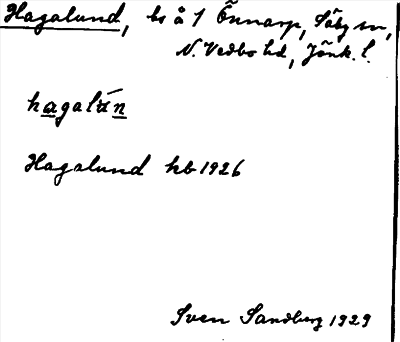 Hagalund, ls å 1 Önnarp, Säby sn,
N. Vedbo hd, Jönk. l.
hagalún
Hagalund hb 1926
Sven Sandberg 1929